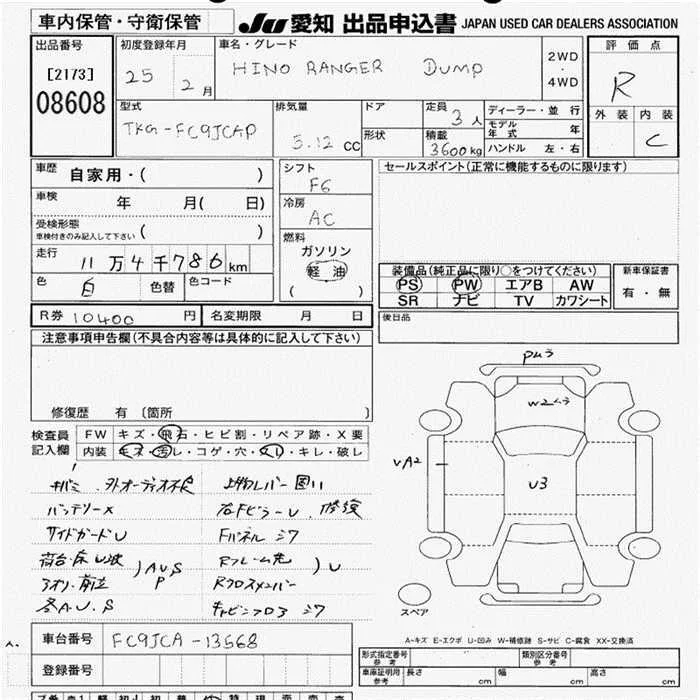 車内保管・守衛保管
JU 愛知 出品申込書 JAPAN USED CAR DEALERS ASSOCIATION
出品番号
[2173]
08608
初度登録年月
25 2月
車名・グレード
HINO RANGER DUMP
2WD
・
4WD
評価点
R
外装 内装
C
型式
TKG-FC9JCAP
排気量
5.12 CC
ドア
形状
定員
3人
積載
3600kg
ディーラー・並行
モデル年式 年
ハンドル 左・右
車歴
自家用・( )
車検
年 月( 日)
受検形態
車検付きのみ記入して下さい ( )
走行
11万4千786km
色
白
色替
色コード
シフト
F6
冷房
AC
燃料
ガソリン
軽油
( )
セールスポイント(正常に機能するものに限ります)
装備品(純正品に限り○をつけてください)
PS PW エアB AW
SR ナビ TV カワシート
新車保証書
有・無
R券 10400 円
名変期限 月 日
後日品
注意事項申告欄(不具合内容等は具体的に記入して下さい)
修復歴 有 〔箇所 〕
検査員
記入欄
FW キズ・飛石・ヒビ割・リペア跡・X要
内装 キズ・汚レ・コゲ・穴・スレ・キレ・破レ
キバミ 外オーディオ不良
バッテリーX
サイドガードU
荷台・床U波
アオリ・前立
)AUS
P
各A.U.S
上物レバー固い
右Fピラー U, 修復
Fパネル ヨワ
Rフレーム先
Rクロスメンバー
)U
キャビンフロア ヨワ
PAう
W2ムラ
VA2
U3
スペア
A-キズ E-エクボ U-凹み W-補修跡 S-サビ C-腐食 XX-交換済
車台番号
FC9JCA-13568
登録番号
形式指定番号
参考
類別区分番号
参考
車庫証明用
参考
長さ cm
幅 cm
高さ cm